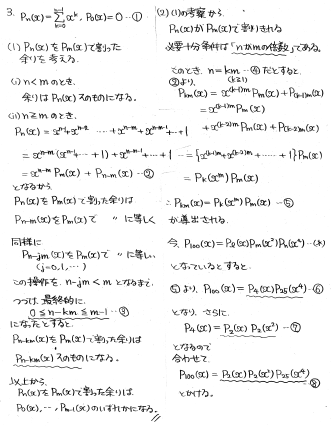 3. Pn(x)=Σ[k=0, n-1] x^k, P0(x)=0 …①
(1) Pn(x)をPm(x)で割った
余りを考える.
(i) n<mのとき.
余りはPn(x)そのものになる。
(ii) n≧mのとき.
Pn(x)=x^{n-1}+x^{n-2} …… +x^{n-m}+x^{n-m-1}…+1
=x^{n-m}(x^{m-1}…+1)+x^{n-m-1}…+1
=x^{n-m}Pm(x)+Pn-m(x) …②
となるから
Pn(x)をPm(x)で割った余りは
Pn-m(x)をPm(x)で 〃 に等しく
同様に
Pn-jm(x)をPm(x)で 〃 に等しい
(j=0,1,…)
この操作を n-jm<mとなるまで.
つづけ、最終的に
0≦n-km≦m-1 …③
になったとすると.
Pn-km(x)をPm(x)で割った余りは
Pn-km(x)そのものになる。
以上から.
Pn(x)をPm(x)で割った余りは.
P0(x),…,Pm-1(x)のいずれかになる。
(2) (1)の考察から
Pn(x)がPm(x)で割りきれる
必要十分条件は「nがmの倍数」である。
このとき、n=km …④だとすると.
(k≧1)
②より.
Pkm(x)=x^{(k-1)m}Pm(x)+P(k-1)m(x)
=x^{(k-1)m}Pm(x)
+x^{(k-2)m}Pm(x)+P(k-2)m(x)
={x^{(k-1)m}+x^{(k-2)m}……+1}Pm(x)
=Pk(x^m)Pm(x)
∴Pkm(x)=Pk(x^m)Pm(x) …⑤
が導出される.
今、P100(x)=Pℓ(x)Pm(x²)Pn(x⁴) …(*)
となっているとすると.
⑤より、P100(x)=P4(x)P25(x⁴) …⑥
となり、さらに.
P4(x)=P2(x)P2(x²) …⑦
となるので
合わせて.
P100(x)=P2(x)P2(x²)P25(x⁴) …⑧
とかける。